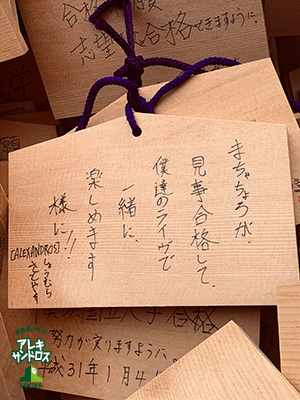 合格
志望 合格できますように。
まちゃちょろが、
見事合格して、
僕達のライヴで
一緒に、
楽しめます
様に!!
[ALEXANDROS]
しょうむら
さとやす
学
願
国立大学合格
努力が実りますように。
平成31年1月4
アレキ
サンドロス